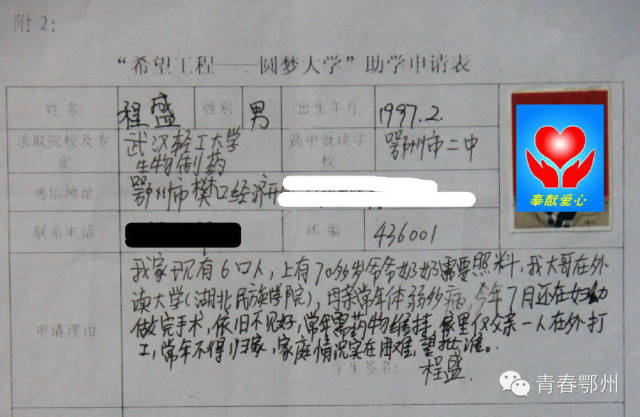 附2：
“希望工程——圆梦大学”助学申请表
姓名 程盛 性别 男 出生年月 1997.2.
录取院校及专业 武汉轻工大学 生物制药 高中就读学校 鄂州市二中
奉献爱心
通信地址 鄂州市樊口经济开
联系电话 邮编 436001
我家现有6口人，上有70多岁爷爷奶奶需要照料，我大哥在外
读大学(湖北民族学院)，母亲常年体弱多病，今年7月还在妇幼
申请理由 做完手术，依旧不见好，常年需药物维持，家里仅父亲一人在外打
工，常年不得归家，家庭情况实在困难，望批准。
学生签名： 程盛
青春鄂州